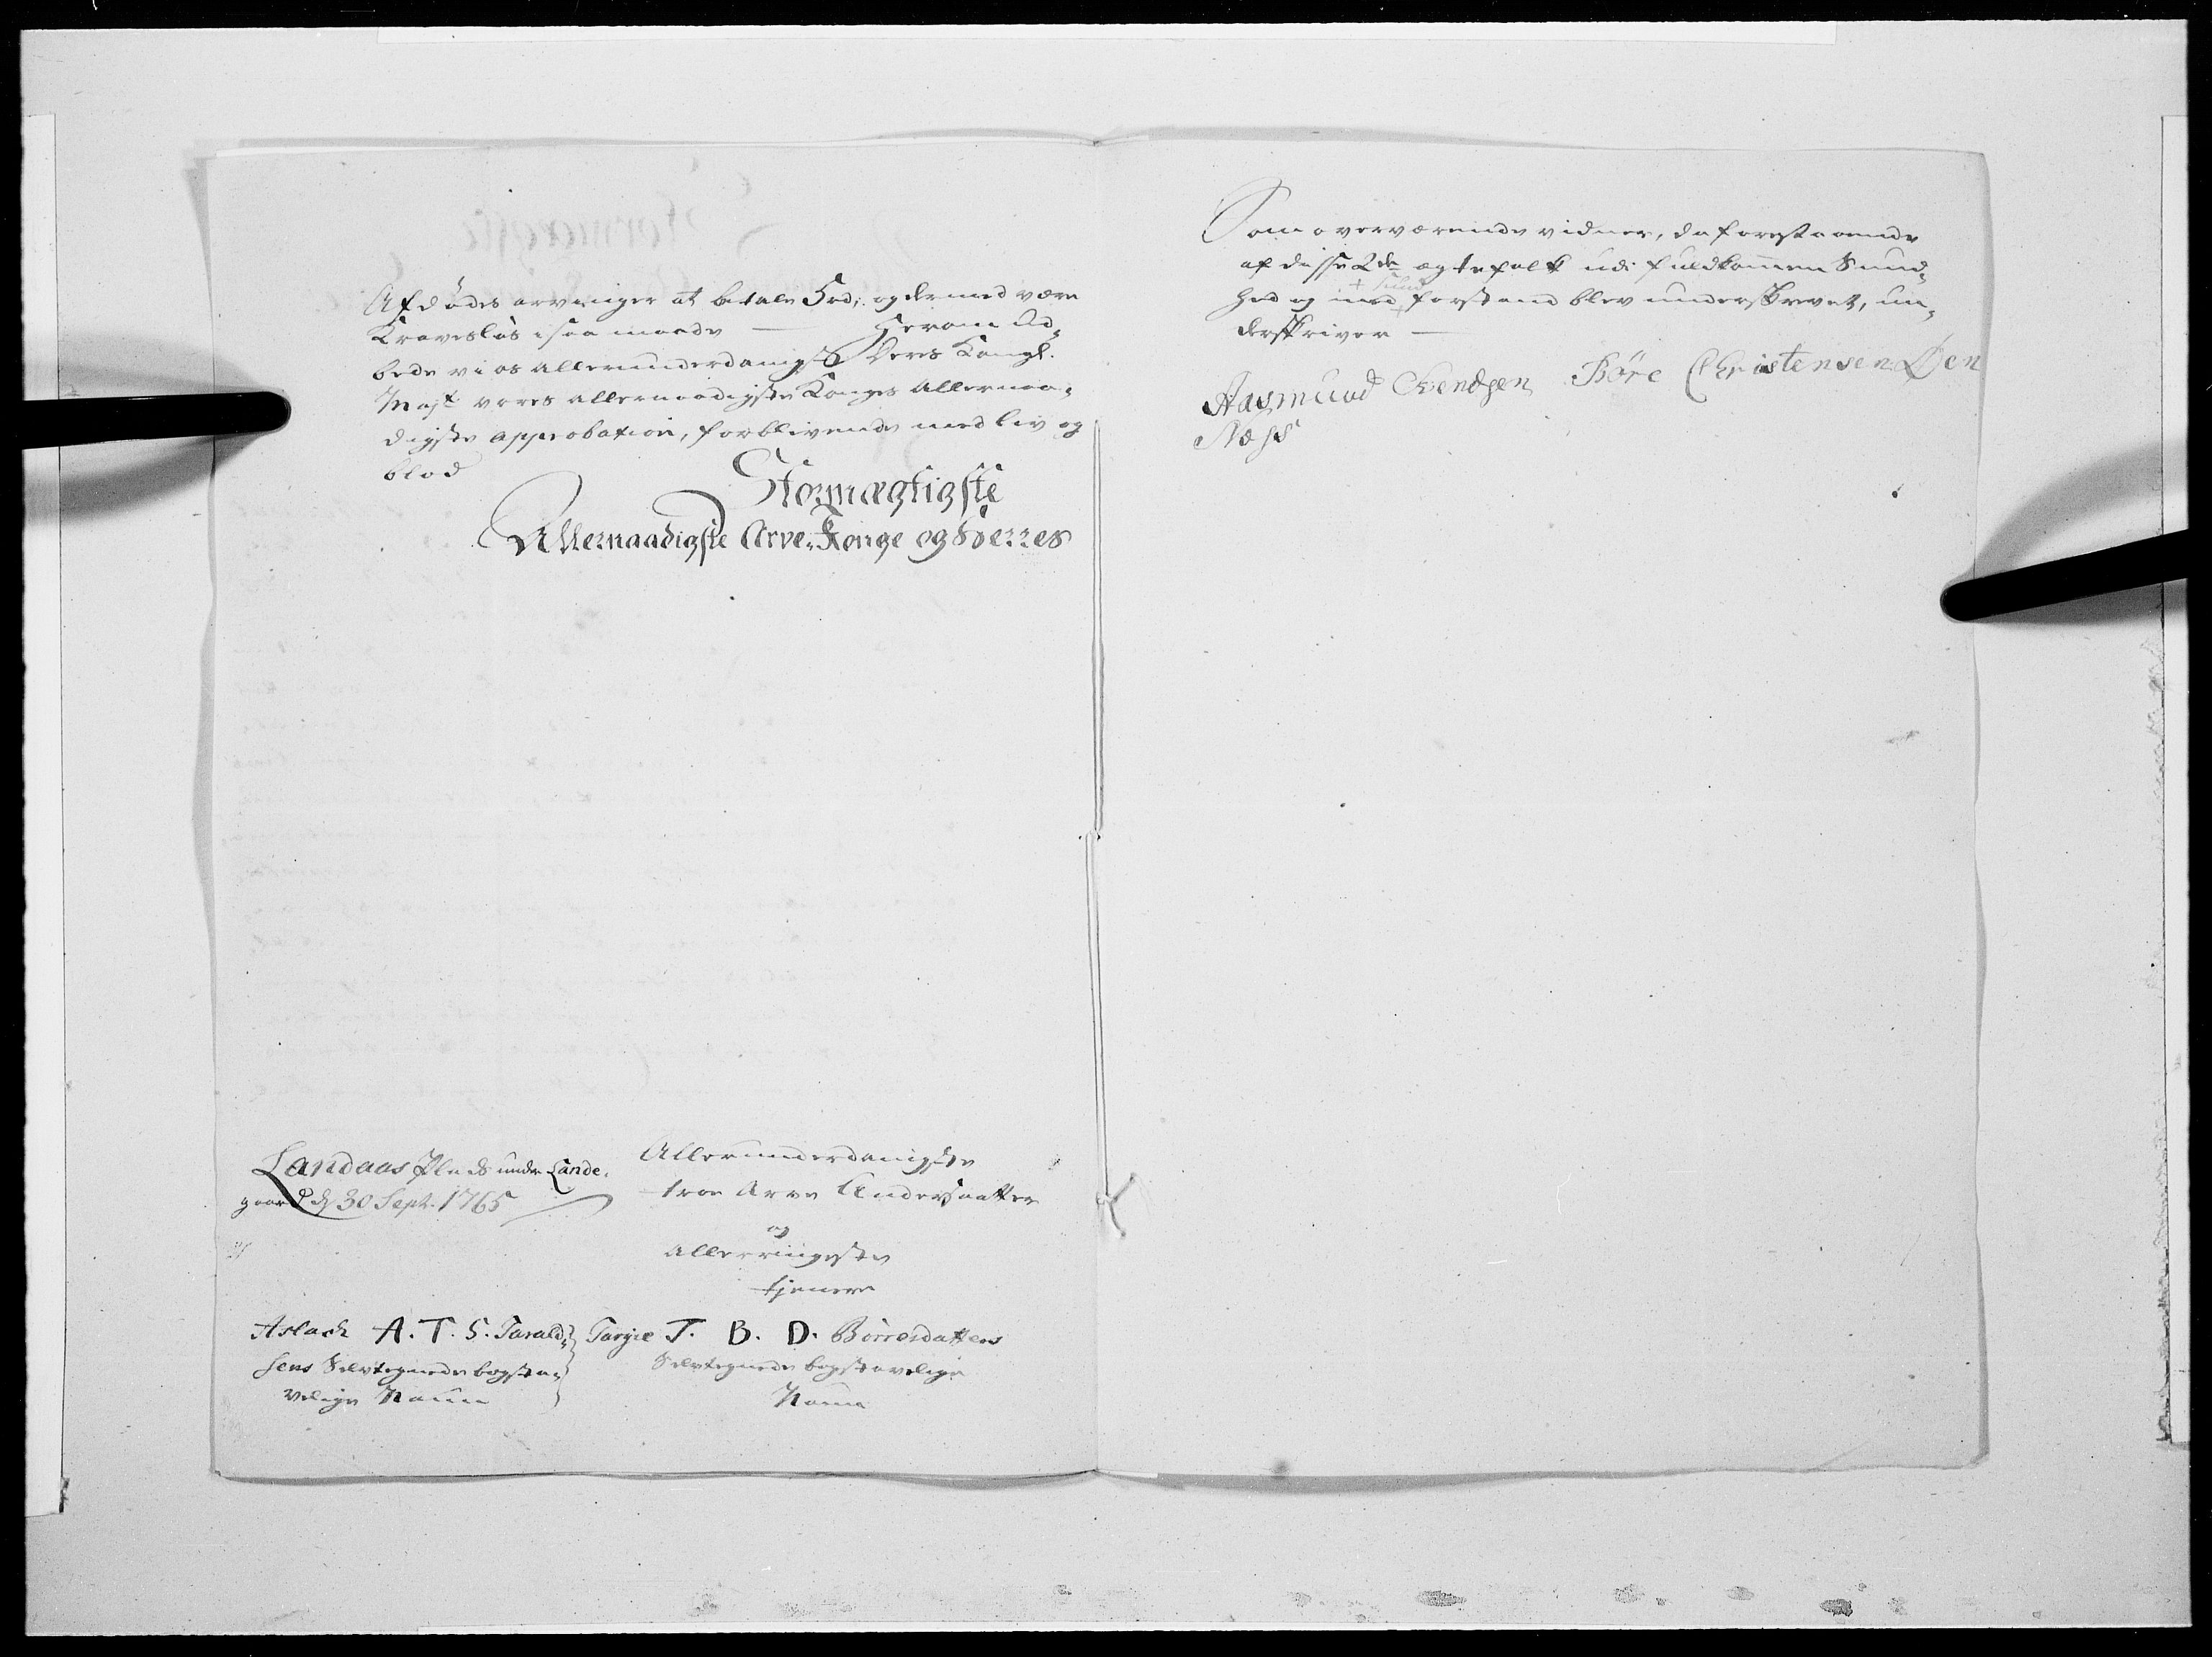 Afdödes arvinger at betale 5 rd; og dermed være
Kravesløs i saa maade — Herom ud¬
bede vi os allerunderdanigst Deres Kongl.
Majt vores allernaadigste Konges allernaa¬
digste approbation, forblivende med liv og
blod
Stormægtigste
Allernaadigste Arve-Konge og Herres
Landaas Plads under Lande¬
gaard d 30 Sept. 1765
Allerunderdanigste
troe Arve Undersaatter
og
allerringeste
tjenere
Aslach A. T. S. Tarald¬
sens Selvtegnede bogsta¬
velige Naun
Targie T. B. D. Börresdatters
Selvtegnede bogstavelige
Naun
Som overværende vidner, da forestaaende
af disse 2de ægtefolk udi fuldkommen Sund¬
hed og med + sund + forstand blev underskrevet, un¬
derskriver —
Aasmund Svendsen Böre Christensen Øen
Næss